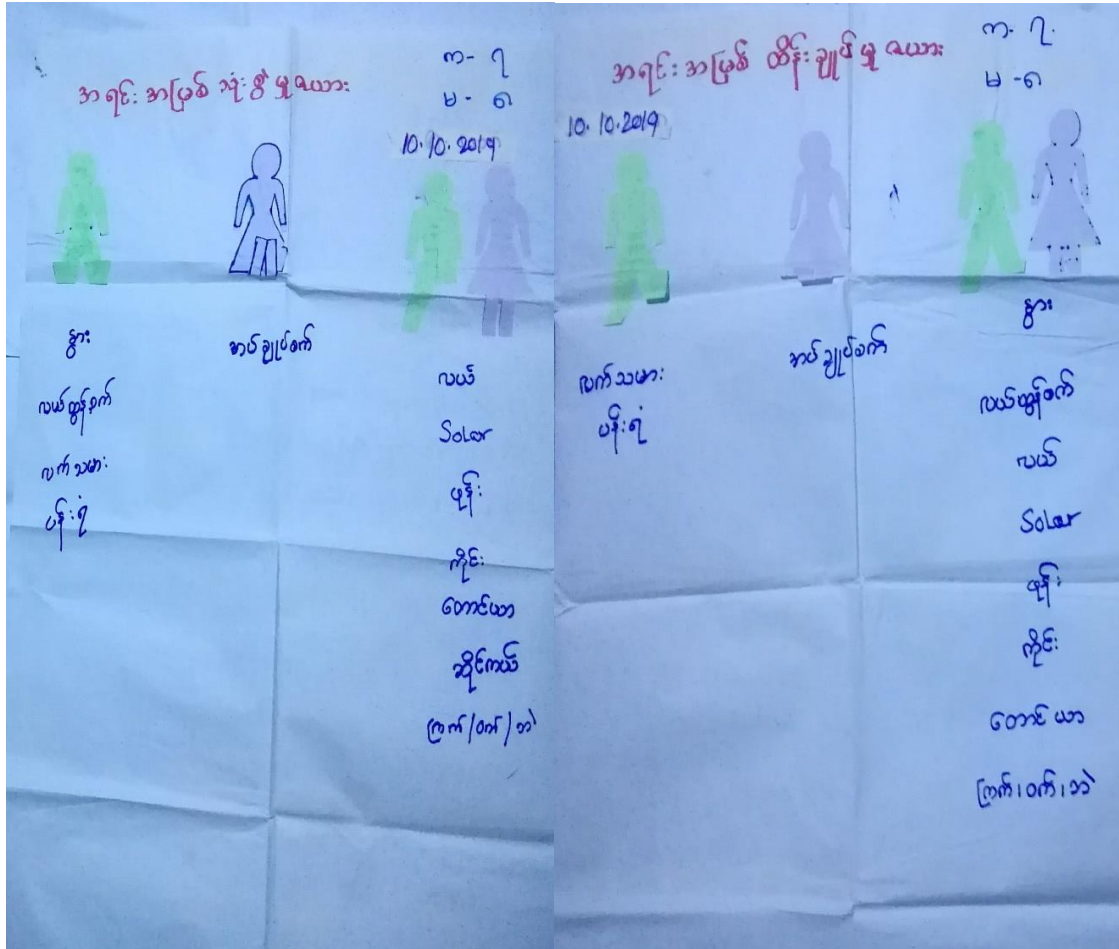 အရင်းအမြစ် သုံးစွဲမှု ဇယား
က - ၇
မ - ၈
10.10.2019
နွား
လယ်ထွန်စက်
လက်သမား
ပန်းရံ
အပ်ချုပ်စက်
လယ်
Solar
ဖုန်း
ကိုင်း
တောင်ယာ
ဆိုင်ကယ်
ကြက်/ဝက်/ဘဲ
အရင်းအမြစ် ထိန်းချုပ်မှု ဇယား
က - ၇.
မ - ၈
10.10.2019
လက်သမား
ပန်းရံ
အပ်ချုပ်စက်
နွား
လယ်ထွန်စက်
လယ်
Solar
ဖုန်း
ကိုင်း
တောင်ယာ
ကြက်၊ဝက်၊ဘဲ